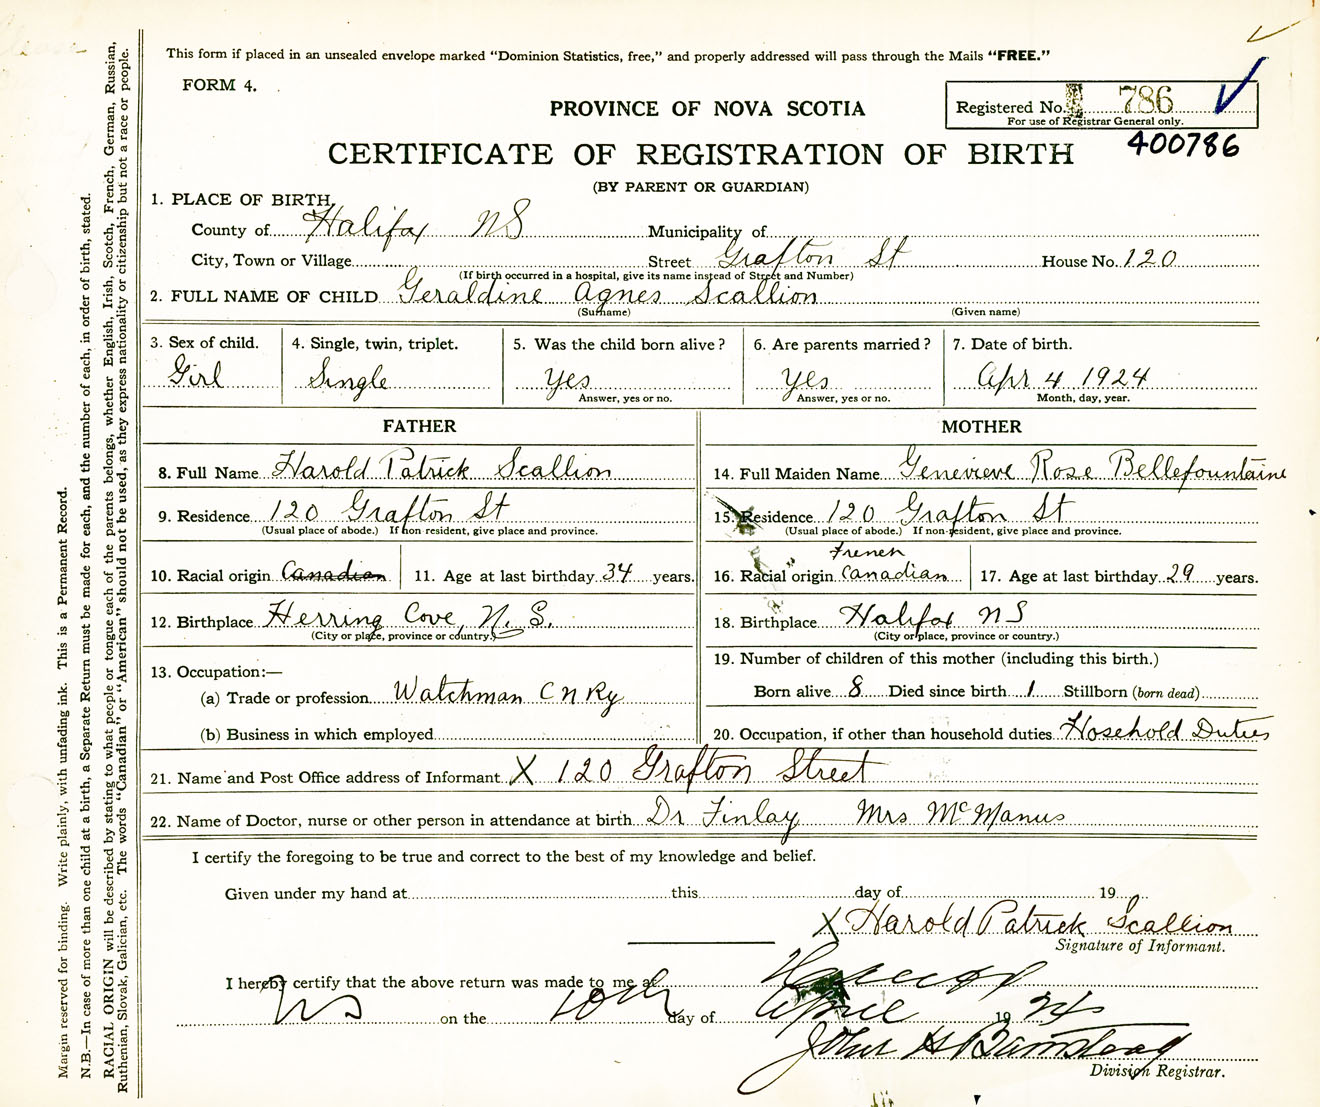 This form if placed in an unsealed envelope marked “Dominion Statistics, free,” and properly addressed will pass through the Mails “FREE.”
FORM 4.
PROVINCE OF NOVA SCOTIA
Registered No. 786
For use of Registrar General only.
400786
CERTIFICATE OF REGISTRATION OF BIRTH
(BY PARENT OR GUARDIAN)
1. PLACE OF BIRTH,
County of Halifax NS Municipality of
City, Town or Village Street Grafton St House No. 120
(If birth occurred in a hospital, give its name instead of Street and Number)
2. FULL NAME OF CHILD Geraldine Agnes Scallion
(Surname) (Given name)
3. Sex of child. 4. Single, twin, triplet. 5. Was the child born alive? 6. Are parents married? 7. Date of birth.
Girl Single Yes Yes Apr 4 1924
Answer, yes or no. Answer, yes or no. Month, day, year.
FATHER MOTHER
8. Full Name Harold Patrick Scallion 14. Full Maiden Name Genevieve Rose Bellefountaine
9. Residence 120 Grafton St 15. Residence 120 Grafton St
(Usual place of abode.) If non-resident, give place and province. (Usual place of abode.) If non-resident, give place and province.
French
10. Racial origin Canadian 11. Age at last birthday 34 years. 16. Racial origin Canadian 17. Age at last birthday 29 years.
12. Birthplace Herring Cove, N. S. 18. Birthplace Halifax NS
(City or place, province or country.) (City or place, province or country.)
13. Occupation:— 19. Number of children of this mother (including this birth.)
(a) Trade or profession Watchman C N Ry Born alive 8 Died since birth 1 Stillborn (born dead)
(b) Business in which employed 20. Occupation, if other than household duties Hosehold Duties
21. Name and Post Office address of Informant X 120 Grafton Street
22. Name of Doctor, nurse or other person in attendance at birth Dr Finlay Mrs McManus
I certify the foregoing to be true and correct to the best of my knowledge and belief.
Given under my hand at this day of 19
X Harold Patrick Scallion
Signature of Informant.
I hereby certify that the above return was made to me at
NS on the 10th day of April 1924
John H Barnstead
Division Registrar.
Margin reserved for binding. Write plainly, with unfading ink. This is a Permanent Record.
N.B.—In case of more than one child at a birth, a Separate Return must be made for each, and the number of each, in order of birth, stated.
RACIAL ORIGIN will be described by stating to what people or tongue each of the parents belongs, whether English, Irish, Scotch, French, German, Russian,
Ruthenian, Slovak, Galician, etc. The words “Canadian” or “American” should not be used, as they express nationality or citizenship but not a race or people.